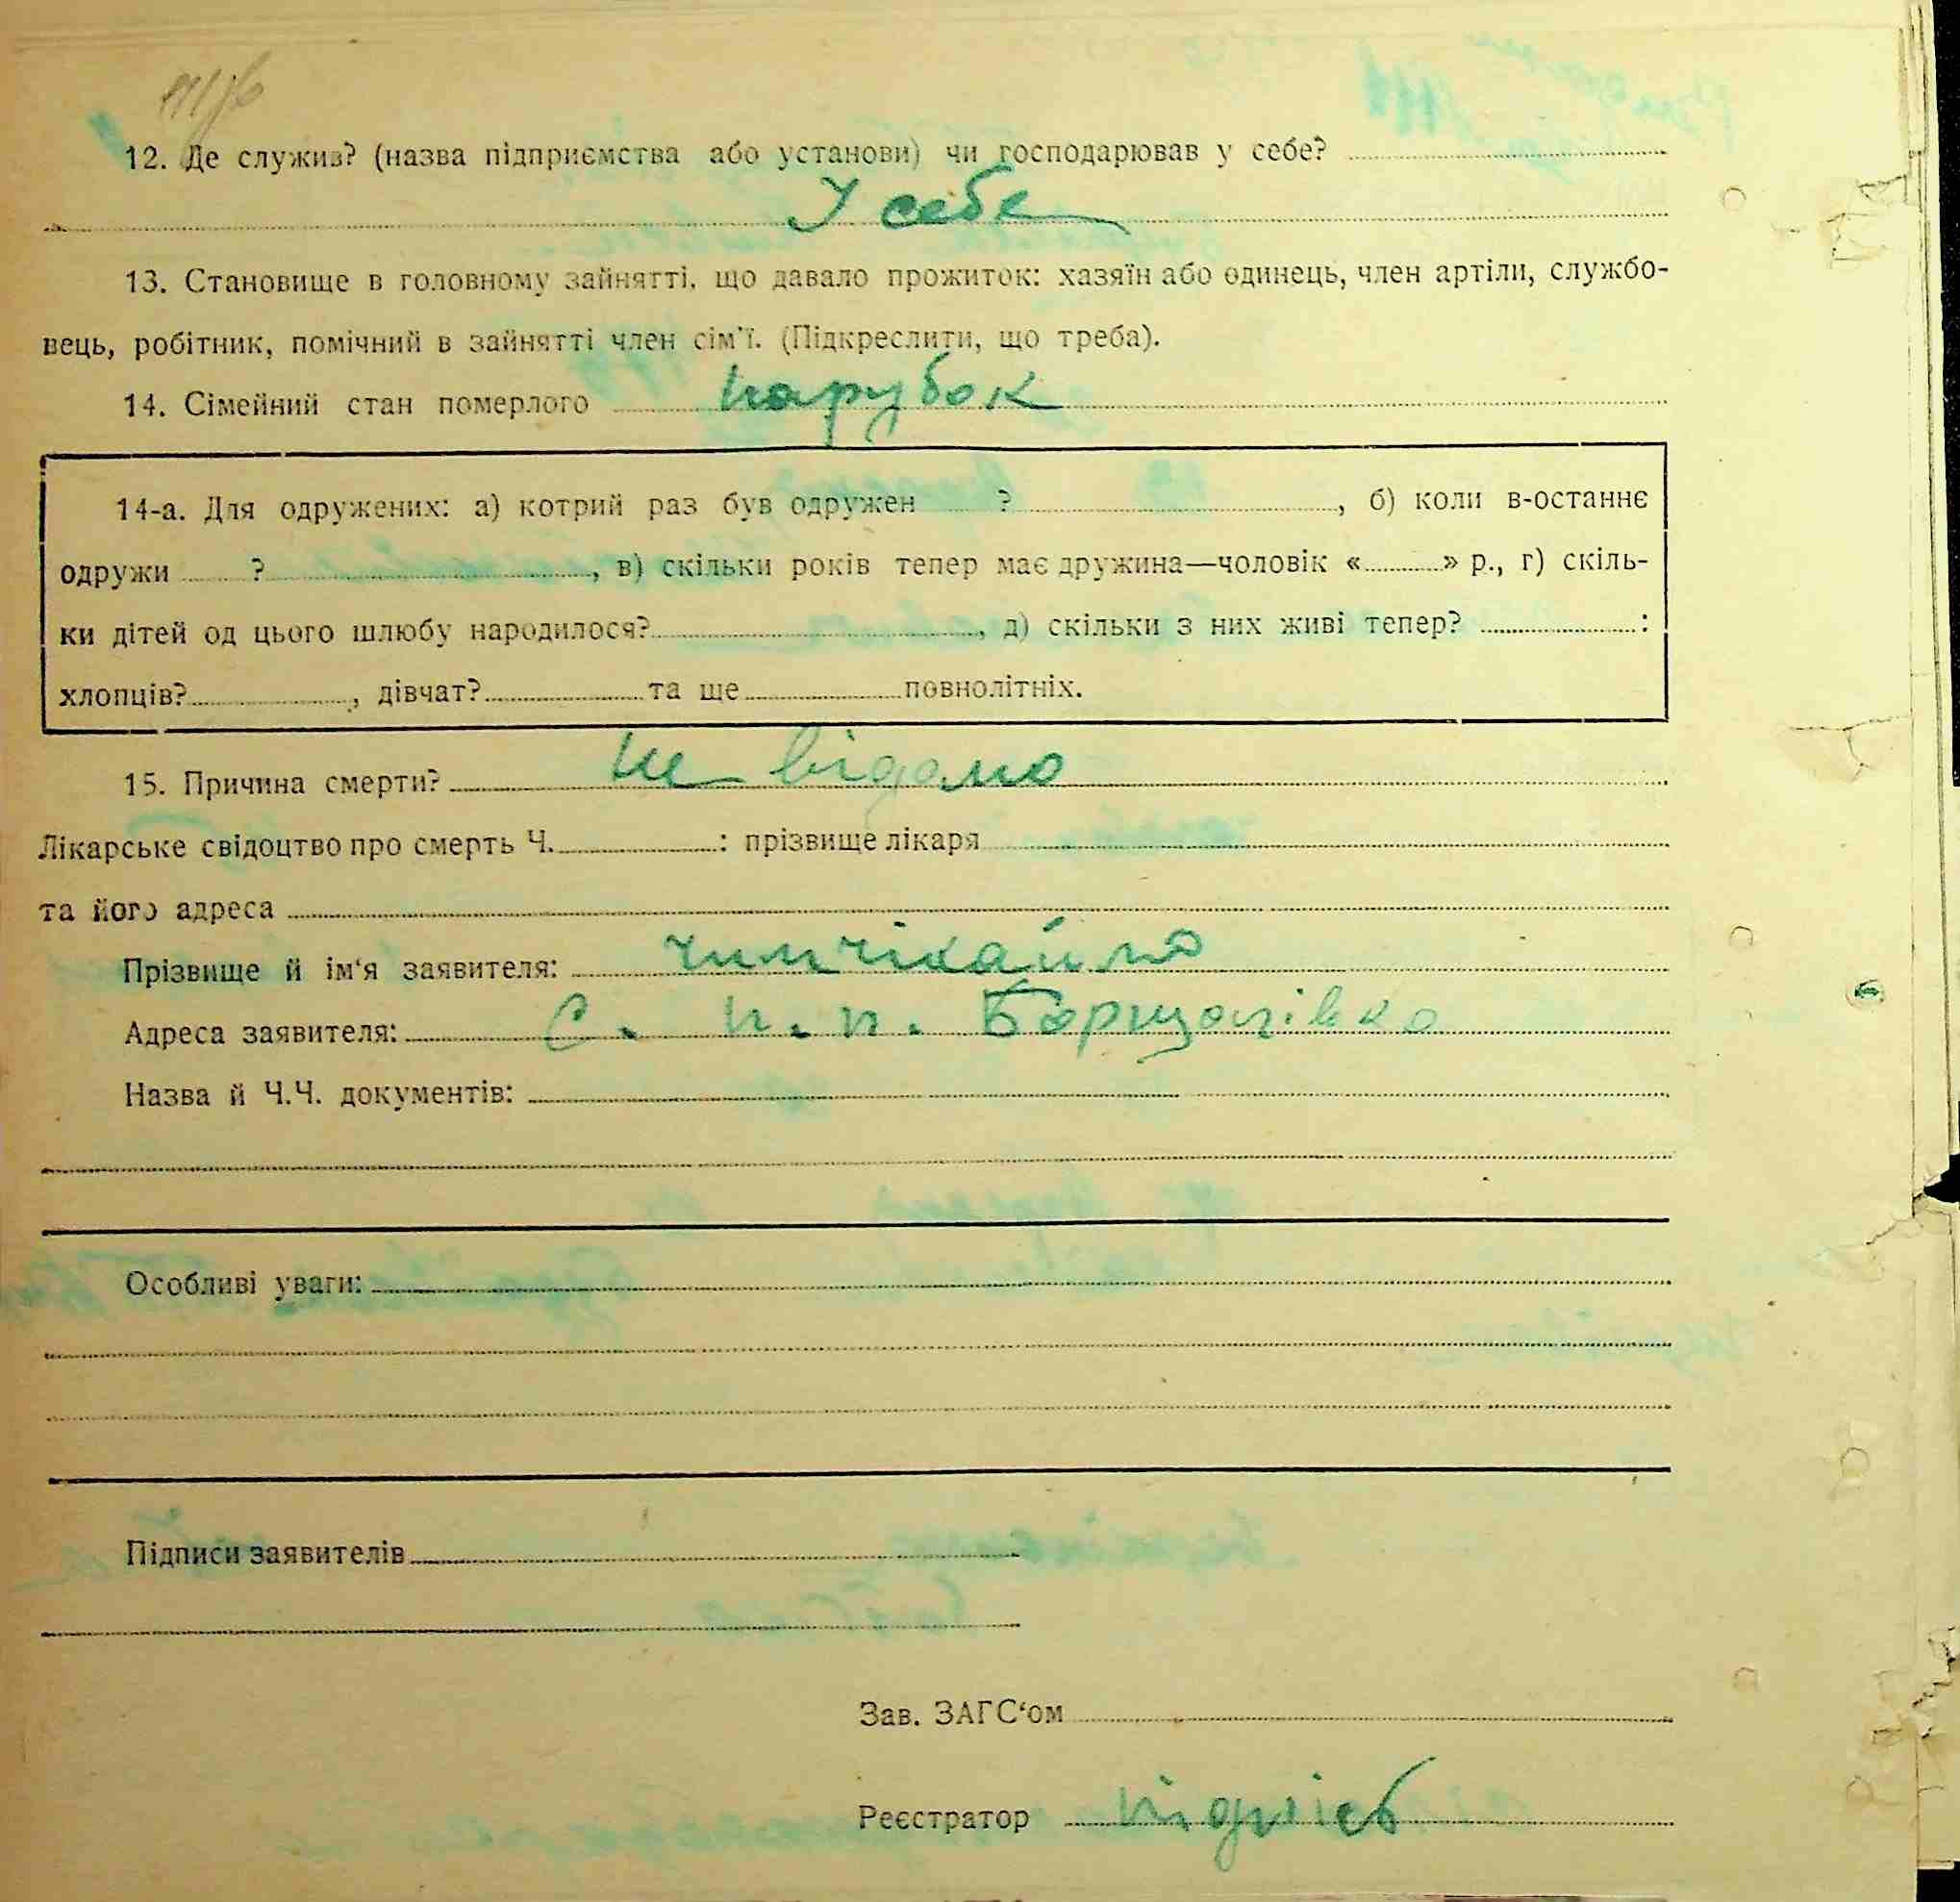 12. Де служив? (назва підприємства або установи) чи господарював у себе?
У себе
13. Становище в головному зайнятті, що давало прожиток: хазяїн або одинець, член артіли, службо-
вець, робітник, помічний в зайнятті член сім'ї. (Підкреслити, що треба).
14. Сімейний стан померлого парубок
14-а. Для одружених: а) котрий раз був одружен ?, б) коли в-останнє
одружи ?, в) скільки років тепер має дружина—чоловік «» р., г) скіль-
ки дітей од цього шлюбу народилося?, д) скільки з них живі тепер? :
хлопців?, дівчат? та ще повнолітніх.
15. Причина смерти? не відомо
Лікарське свідоцтво про смерть Ч. : прізвище лікаря
та його адреса
Прізвище й ім'я заявителя:
Адреса заявителя: С. п. п. Борщагівка
Назва й Ч.Ч. документів:
Особливі уваги:
Підписи заявителів
Зав. ЗАГС'ом
Реєстратор підпіс